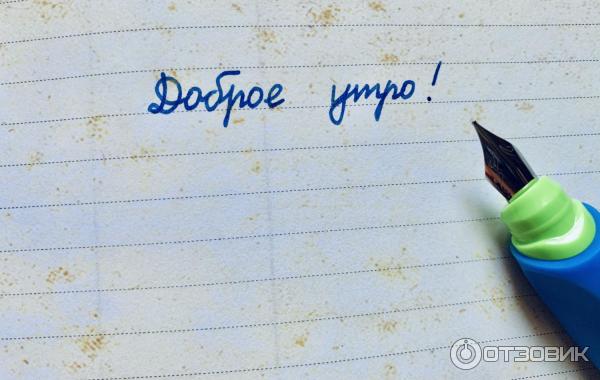 Доброе утро!
ОТЗОВИК